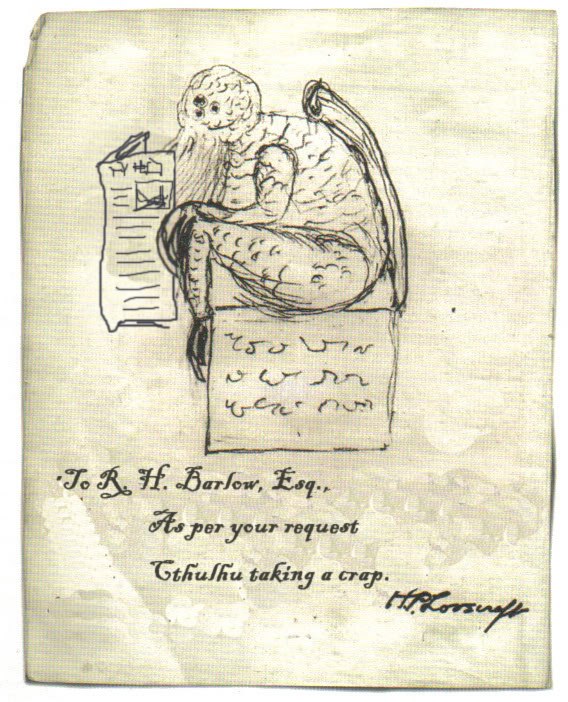 To R. H. Barlow, Esq.,
As per your request
Cthulhu taking a crap.
H.P. Lovecraft